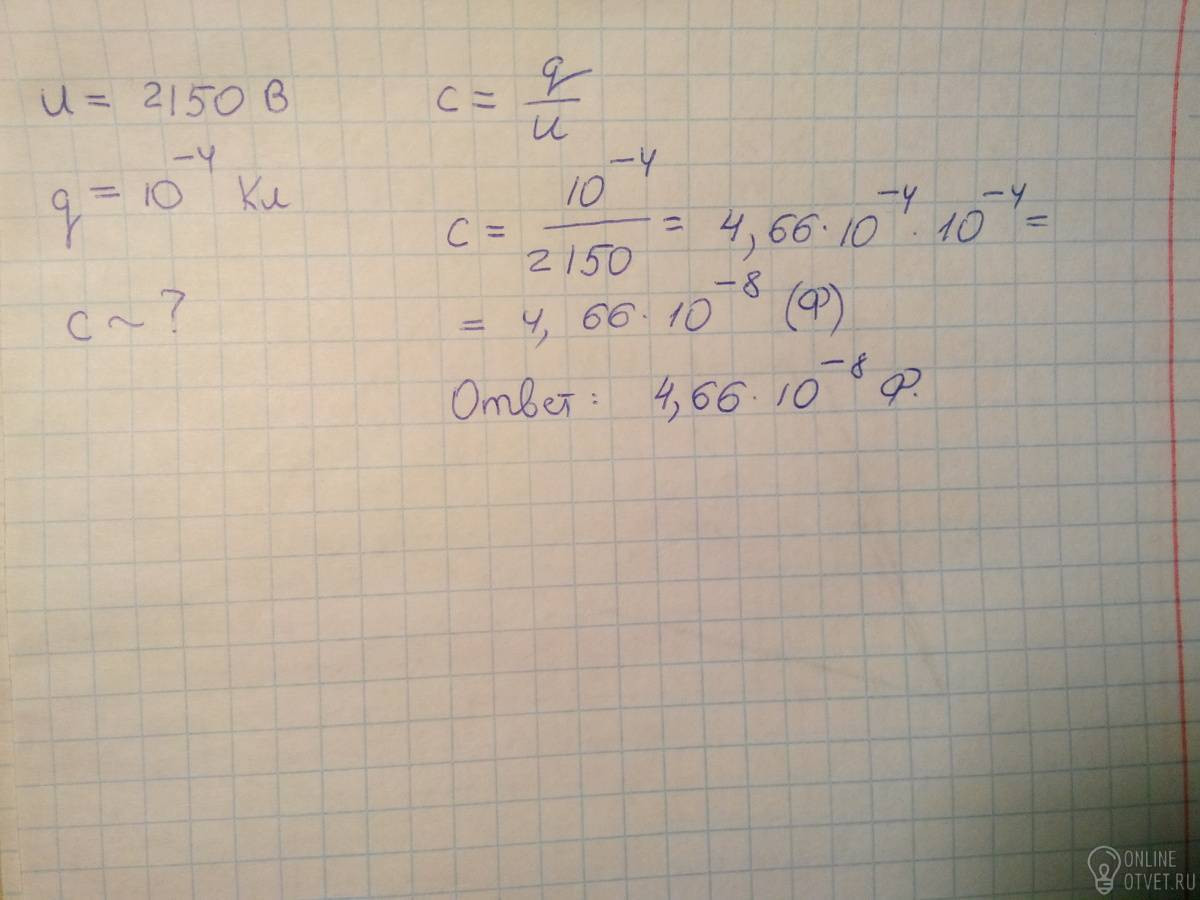 U = 2150 В
q = 10⁻⁴ Кл
C ~ ?
C = q/U
C = 10⁻⁴/2150 = 4,66 · 10⁻⁴ · 10⁻⁴ =
= 4,66 · 10⁻⁸ (Ф)
Ответ: 4,66 · 10⁻⁸ Ф.
ONLINE
OTVET.RU